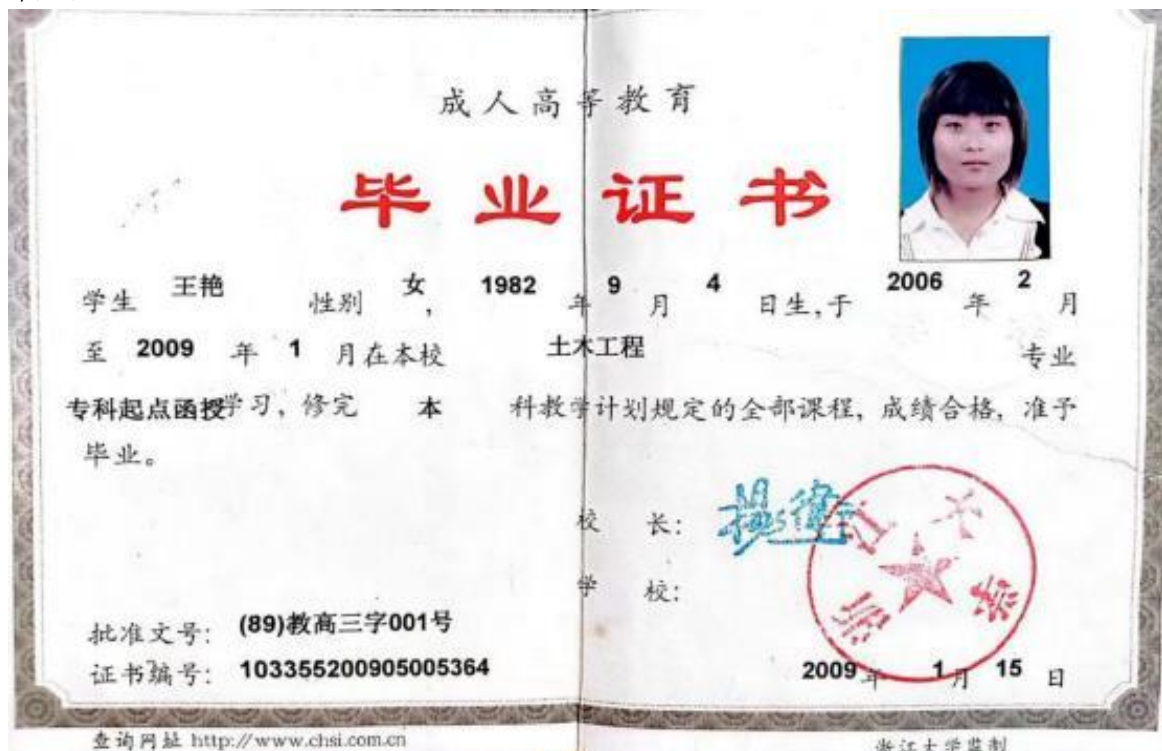 成人高等教育
毕业证书
学生 王艳 性别 女, 1982 年 9 月 4 日生,于 2006 年 2 月
至 2009 年 1 月在本校 土木工程 专业
专科起点函授学习, 修完 本 科教学计划规定的全部课程, 成绩合格, 准予
毕业。
校 长: 杨卫
学 校:
浙江大学
批准文号: (89)教高三字001号
证书编号: 103355200905005364
2009 年 1 月 15 日
查询网址 http://www.chsi.com.cn
浙江大学监制